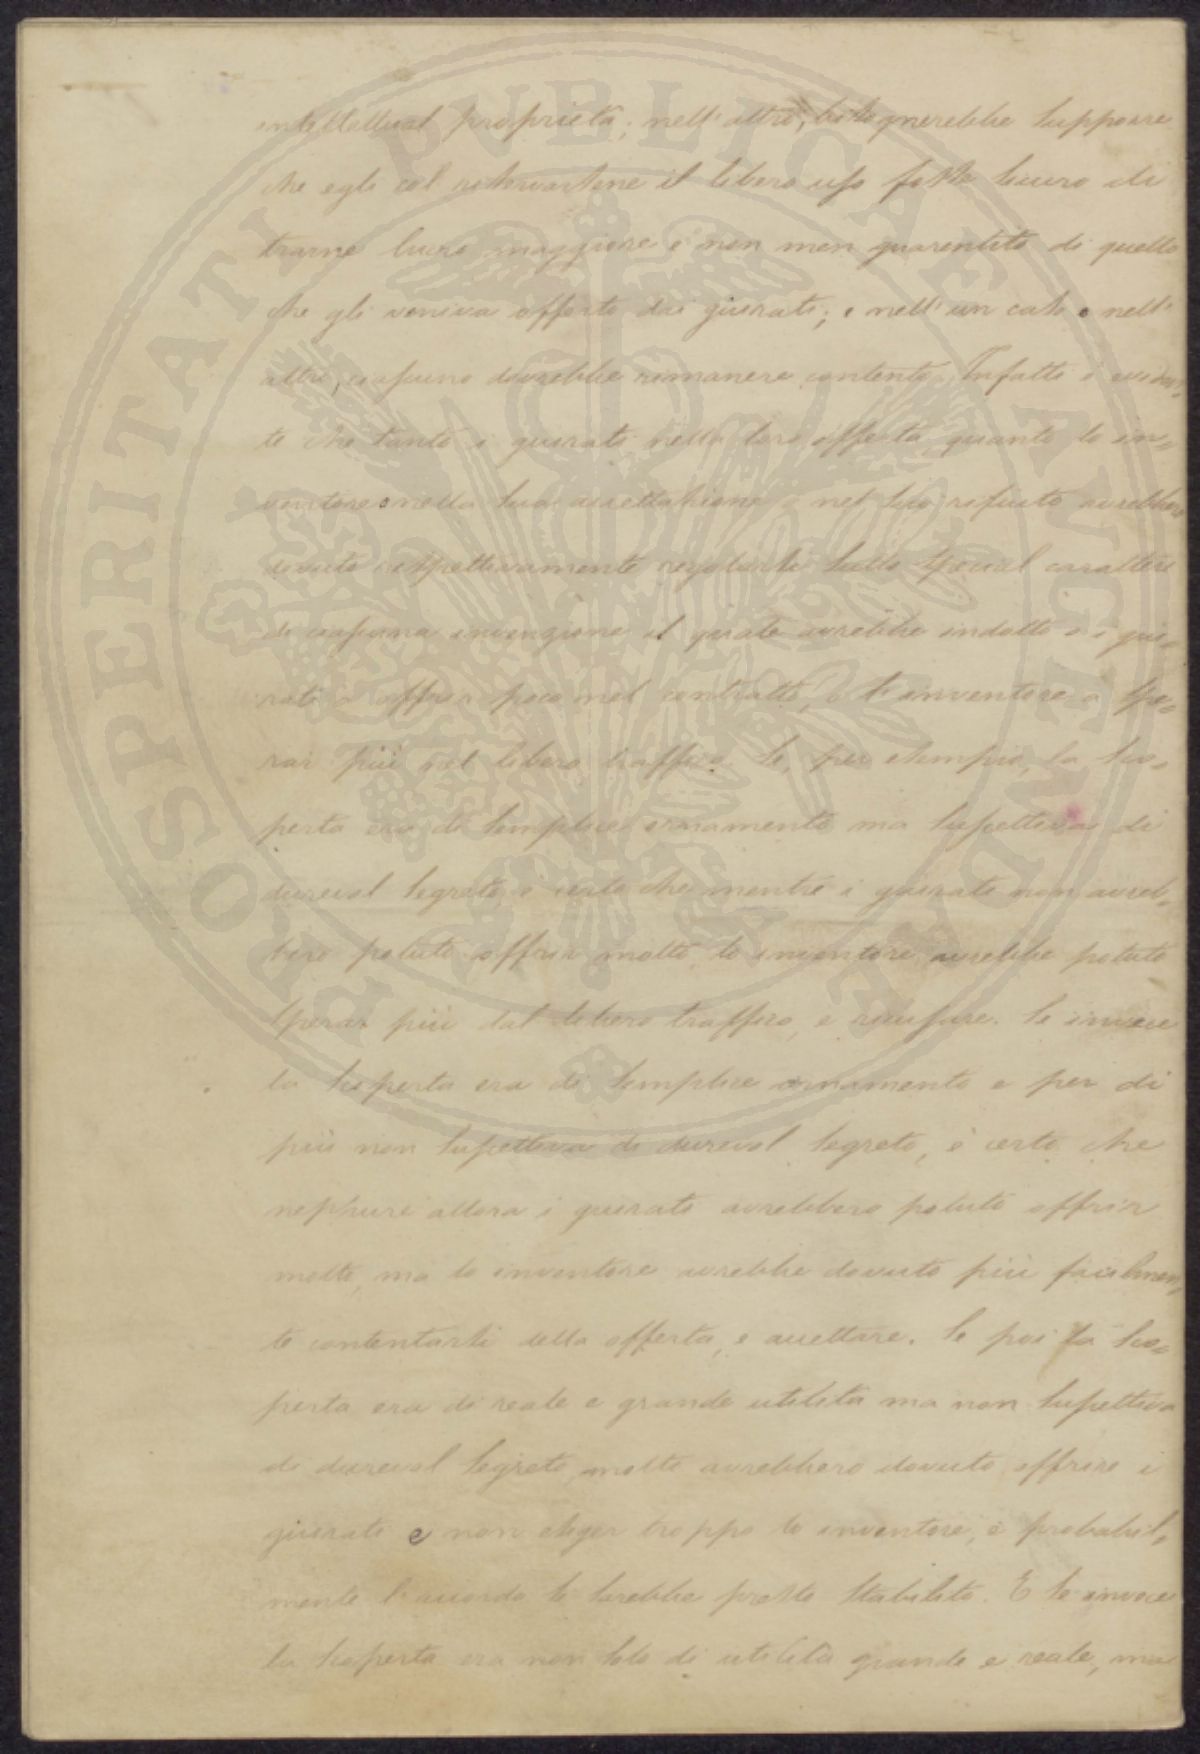 intellettual proprietà; nell'altro, bisognerebbe supporre
che egli col riservarsene il libero uso fosse sicuro di
trarne lucro maggiore e non men guarentito di quello
che gli veniva offerto dai giurati; e nell'un caso e nell'
altro, ciascuno dovrebbe rimanere contento. Infatti è eviden=
te che tanto i giurati nella loro offerta, quanto lo in=
ventore nella sua accettazione o nel suo rifiuto avrebbero
dovuto rispettivamente regolarsi sullo special carattere
di ciascuna invenzione il quale avrebbe indotto o i giu=
rati a offrir poco nel contratto, o l'inventore a spe=
rar più nel libero traffico. Se, per esempio, la sco=
perta era di semplice ornamento ma suscettiva di
dureval segreto, è certo che mentre i giurati non avreb=
bero potuto offrir molto lo inventore avrebbe potuto
sperar più dal libero traffico, e ricusare. Se invece
la scoperta era di semplice ornamento e per di
più non suscettiva di dureval segreto, è certo che
neppure allora i giurati avrebbero potuto offrir
molto, ma lo inventore avrebbe dovuto più facilmen=
te contentarsi della offerta, e accettare. Se poi la sco=
perta era di reale e grande utilità ma non suscettiva
di dureval segreto, molto avrebbero dovuto offrire i
giurati e non esiger troppo lo inventore, e probabil=
mente l'accordo si sarebbe presto stabilito. E se invece
la scoperta era non solo di utilità grande e reale, ma
PROSPERITATI PVBLICAE AVGENDAE